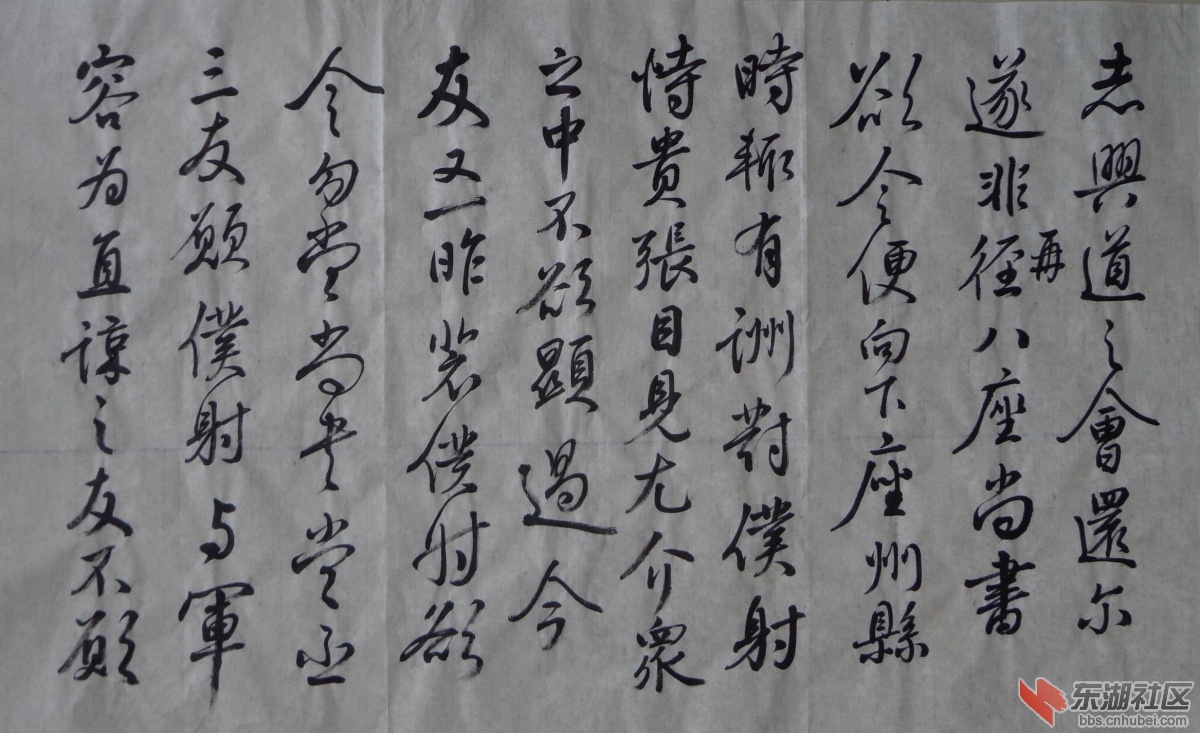 志興道之會還尔
遂非再徑八座尚書
欲令便向下座州縣
時輒有詶對僕射
恃貴張目見尤介衆
之中不欲顯過今
友又一昨裴僕射欲
令勿當尚書當丞
三友願僕射与軍
容为直諒之友不願
东湖社区
bbs.cnhubei.com